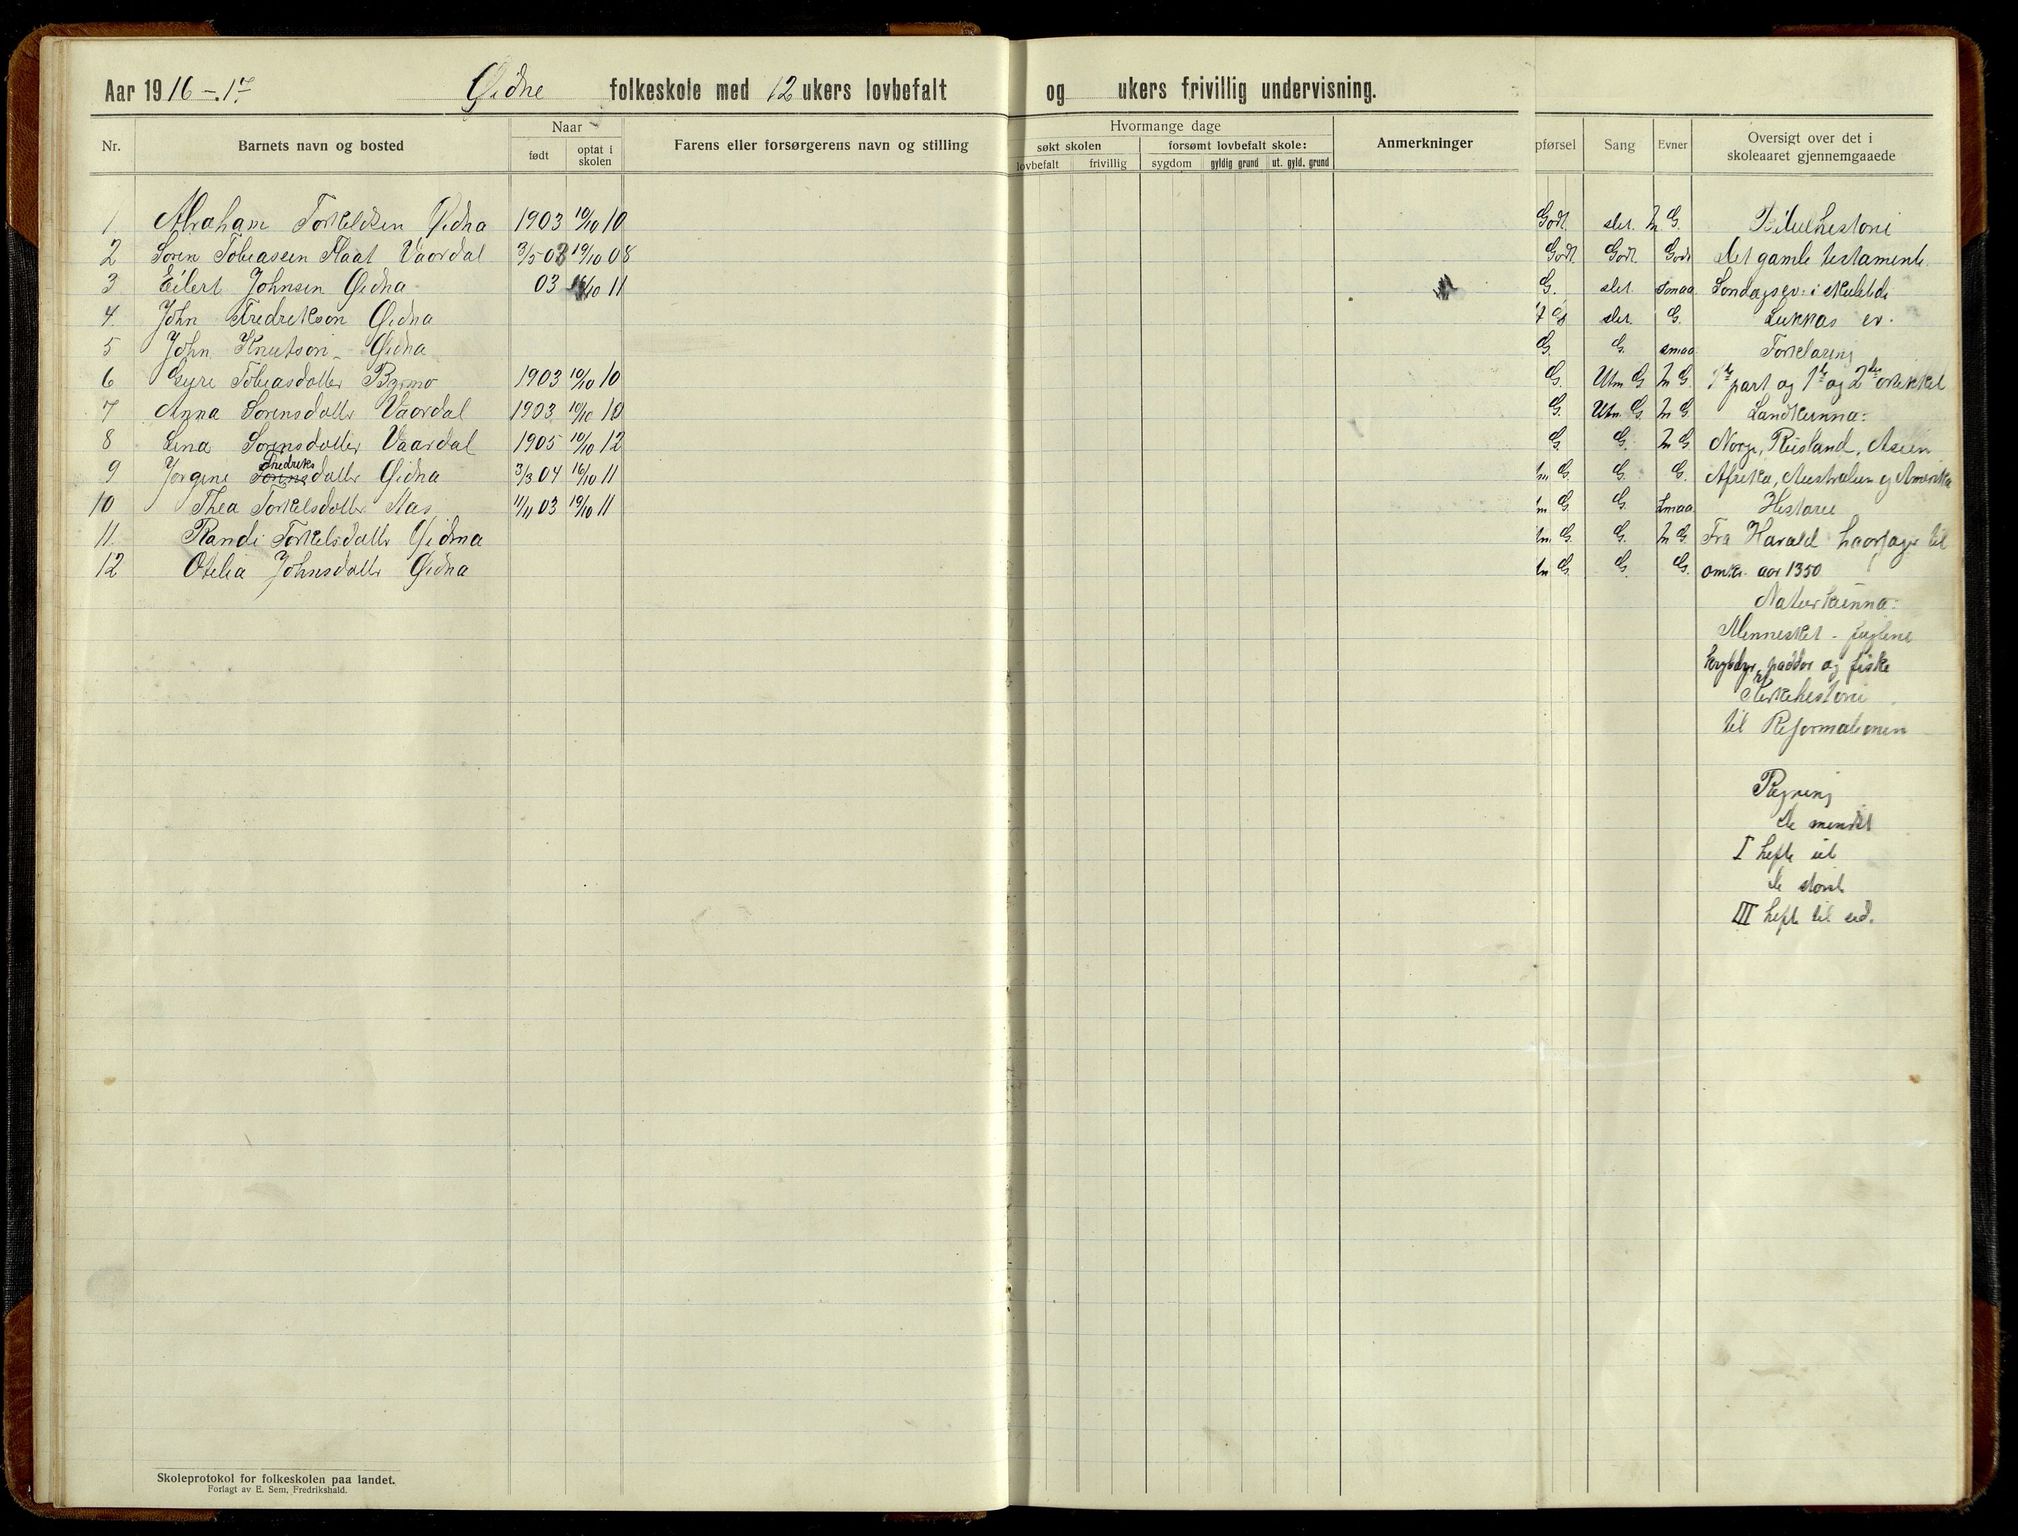 Aar 1916-17. Øidne folkeskole med 12 ukers lovbefalt og ukers frivillig undervisning.
Nr. Barnets navn og bosted Naar født optat i skolen Farens eller forsørgerens navn og stilling
Hvormange dage
søkt skolen forsømt lovbefalt skole:
lovbefalt frivillig sygdom gyldig grund ut. gyld. grund
Anmerkninger
pførsel Sang Evner Oversigt over det i
skoleaaret gjennemgaaede
1. Abraham Torkeldsen Øidna 1903 10/10 10 Godt. slet. M G. Bibelhestorie
2 Søren Tobiasen Flaat Vaardal 3/5 03 10/10 08 Godt. Godt. Godt Det gamle testamente
3 Eilert Johnsen Øidna 03 16/10 11 G. slet. smaa Søndagsev. i skuletide
4. John Fredrikson Øidna slet. G. Lukkas ev.
5 John Knutson - Øidna G. G. smaa Forklaring
6 Gyre Tobiasdotter Byrmo 1903 10/10 10 G. Utm G M G. 1ste part og 1ste og 2den artikkel
7 Anna Sørensdotter Vaardal 1903 10/10 10 G. Utm. G M G. Landkunna:
8 Lina Sørensdotter Vaardal 1905 10/10 12 G. G. M G. Norge, Rusland, Asien
9 Jørgine Sørensdotter Fredriks Øidna 3/3 04 16/10 11 m G. G. G. Afrika, Australien og Amerika
10 Thea Torkelsdotter Aas 11/11 03 10/10 11 m G. G. smaa Historie
11. Randi Torkelsdotter Øidna m. G. G. M G. Fra Harald haarfager til
12 Otelia Johnsdotter Øidna m G. G. G. omkr. aar 1350
Naturkunna:
Mennesket - fuglene
krybdyr, padder og fiske
Kirkehistorie
til Reformationen
Regning
de mindst
I hefte ut
de størst
III hefte til ud.
Skoleprotokol for folkeskolen paa landet.
Forlagt av E. Sem, Fredrikshald.